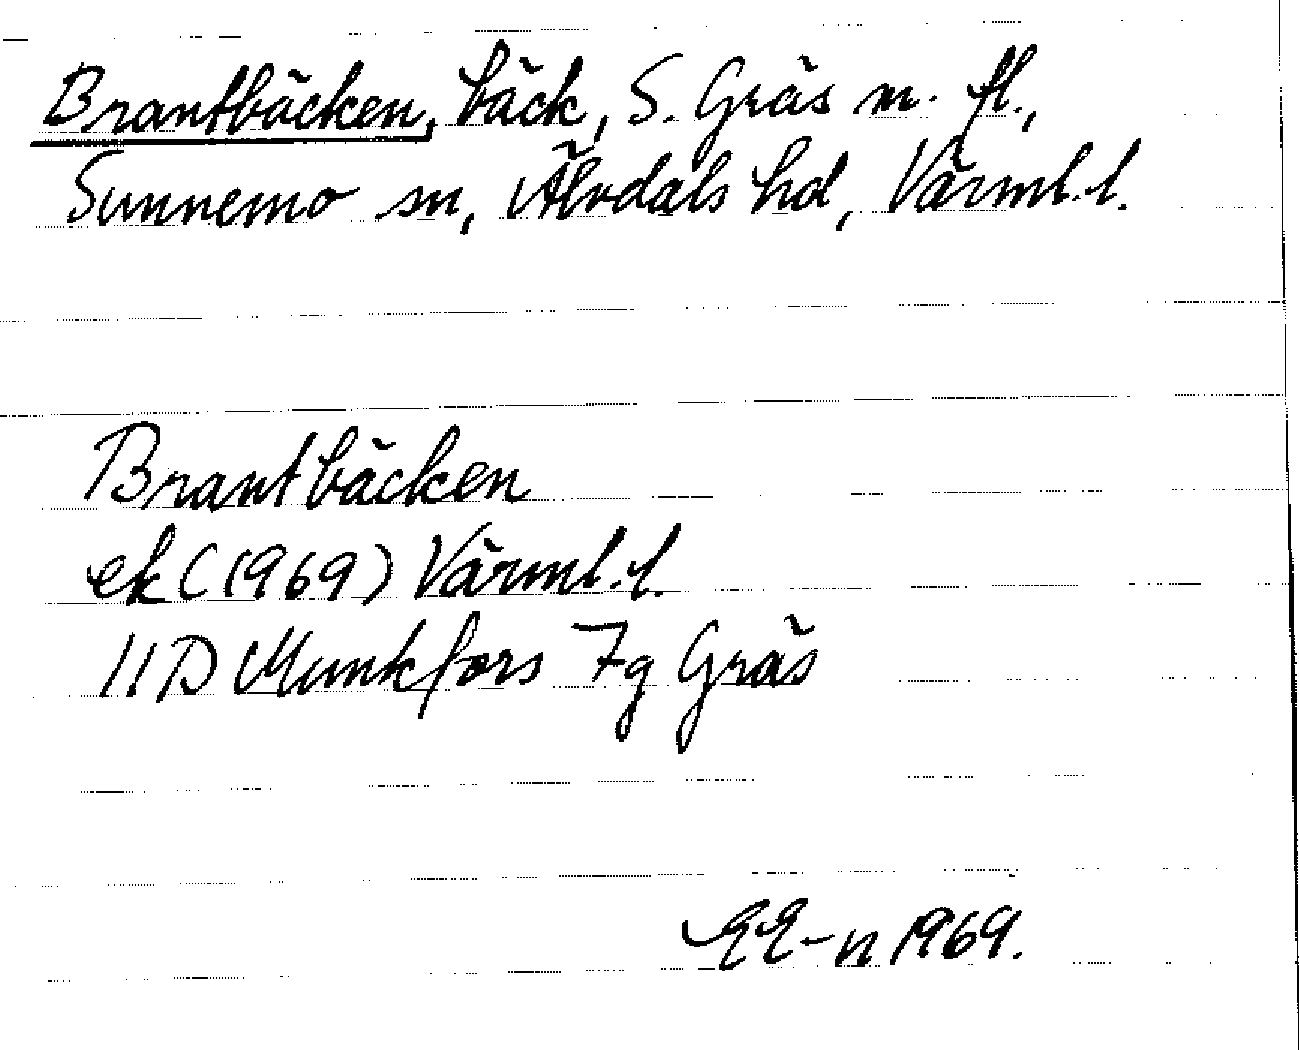 Brantbäcken, bäck, S. Gräs m. fl.,
Sunnemo sn, Älvdals hd, Värml. l.
Brantbäcken
ek (1969) Värml. l.
11D Munkfors 7g Gräs
EE-n 1969.